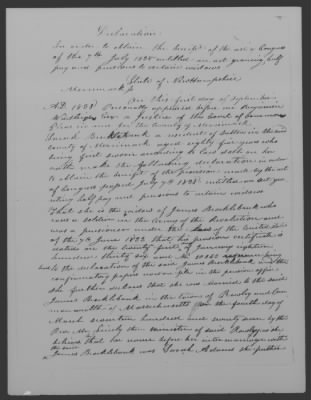 Declaration
In order to obtain the benefit of the act of Congress
of the 7th July 1838 entitled an act granting half
pay and pensions to certain widows
State of New Hampshire
Merrimack ss
On this first day of September
A.D. 1838 Personally appeared before me Benjamin
Esqr a Justice of the Court of Common
Pleas in and for the County of Merrimack
Bricklebank a resident of in the said
county of Merrimack aged eighty five years who
being first sworn according to law doth on her
oath make the following declaration in order
to obtain the benefit of the provision made by the act
of Congress passed July 7th 1838 entitled an act gran
ting half pay and pensions to certain widows
That she is the widow of James Bricklebank who
was a soldier in the Army of the Revolution and
was a pensioner under the of the United States
of the 7th June 1832 that his pension certificate is
dated on the twenty first of January eighteen
hundred thirty six and No
to the declaration of the said James Bricklebank and the
confirmatory papers now on file in the pension office
she further declares that she was married to the said
James Bricklebank in the town of Rowley and Com
monwealth of Massachusetts on the fourth day of
March seventeen hundred and seventy seven by the
Rev. Mr. the minister of said Rowley as she
believes That her name before her intermarriage with
the said
James Bricklebank was Sarah Adams she further